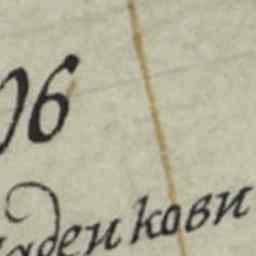 06
аден кови